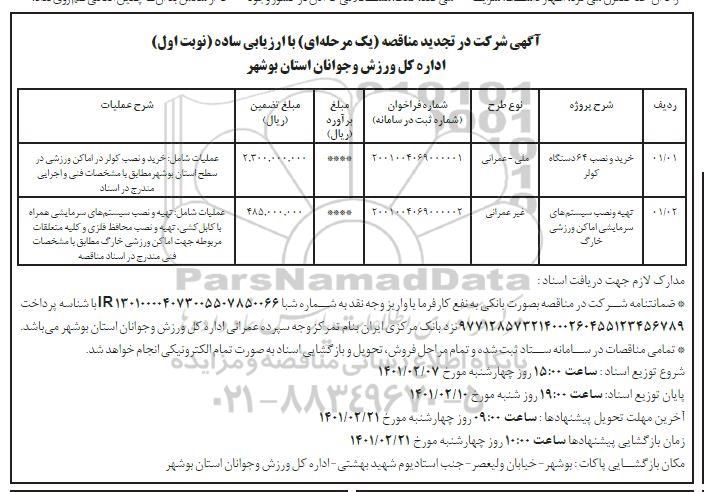 آگهی شرکت در تجدید مناقصه (یک مرحله‌ای) با ارزیابی ساده (نوبت اول)
اداره کل ورزش و جوانان استان بوشهر
ردیف
شرح پروژه
نوع طرح
شماره فراخوان
(شماره ثبت در سامانه)
مبلغ
برآورد
(ریال)
مبلغ تضمین
(ریال)
شرح عملیات
۰۱/۰۱
خرید و نصب ۶۴ دستگاه
کولر
ملی - عمرانی
۲۰۰۱۰۰۴۰۶۹۰۰۰۰۰۱
****
۲.۳۰۰.۰۰۰.۰۰۰
عملیات شامل: خرید و نصب کولر در اماکن ورزشی در
سطح استان بوشهر مطابق با مشخصات فنی و اجرایی
مندرج در اسناد
۰۱/۰۲
تهیه و نصب سیستم‌های
سرمایشی اماکن ورزشی
خارگ
غیر عمرانی
۲۰۰۱۰۰۴۰۶۹۰۰۰۰۰۲
****
۴۸۵.۰۰۰.۰۰۰
عملیات شامل: تهیه و نصب سیستم‌های سرمایشی همراه
با کابل کشی، تهیه و نصب محافظ فلزی و کلیه متعلقات
مربوطه جهت اماکن ورزشی خارگ مطابق با مشخصات
فنی مندرج در اسناد مناقصه
ParsNamadData
مدارک لازم جهت دریافت اسناد :
* ضمانتنامه شرکت در مناقصه بصورت بانکی به نفع کارفرما یا واریز وجه نقد به شماره شبا IR۱۳۰۱۰۰۰۰۴۰۷۳۰۰۵۵۰۷۸۵۰۰۶۶ با شناسه پرداخت
۹۷۷۱۲۸۵۷۳۲۱۴۰۰۰۲۶۰۴۵۵۱۲۳۴۵۶۷۸۹ نزد بانک مرکزی ایران بنام تمرکز وجوه سپرده عمرانی اداره کل ورزش و جوانان استان بوشهر می‌باشد.
* تمامی مناقصات در سامانه ستاد ثبت شده و تمام مراحل فروش، تحویل و بازگشایی اسناد به صورت تمام الکترونیکی انجام خواهد شد.
شروع توزیع اسناد: ساعت ۱۵:۰۰ روز چهارشنبه مورخ ۱۴۰۱/۰۲/۰۷
پایان توزیع اسناد: ساعت ۱۹:۰۰ روز شنبه مورخ ۱۴۰۱/۰۲/۱۰
آخرین مهلت تحویل پیشنهادها : ساعت ۰۹:۰۰ روز چهارشنبه مورخ ۱۴۰۱/۰۲/۲۱
زمان بازگشایی پیشنهادها ساعت ۱۰:۰۰ روز چهارشنبه مورخ ۱۴۰۱/۰۲/۲۱
مکان بازگشایی پاکات : بوشهر - خیابان ولیعصر - جنب استادیوم شهید بهشتی - اداره کل ورزش و جوانان استان بوشهر
پایگاه اطلاع رسانی مناقصه و مزایده
۰۲۱-۸۸۳۴۹۶۷۰-۵